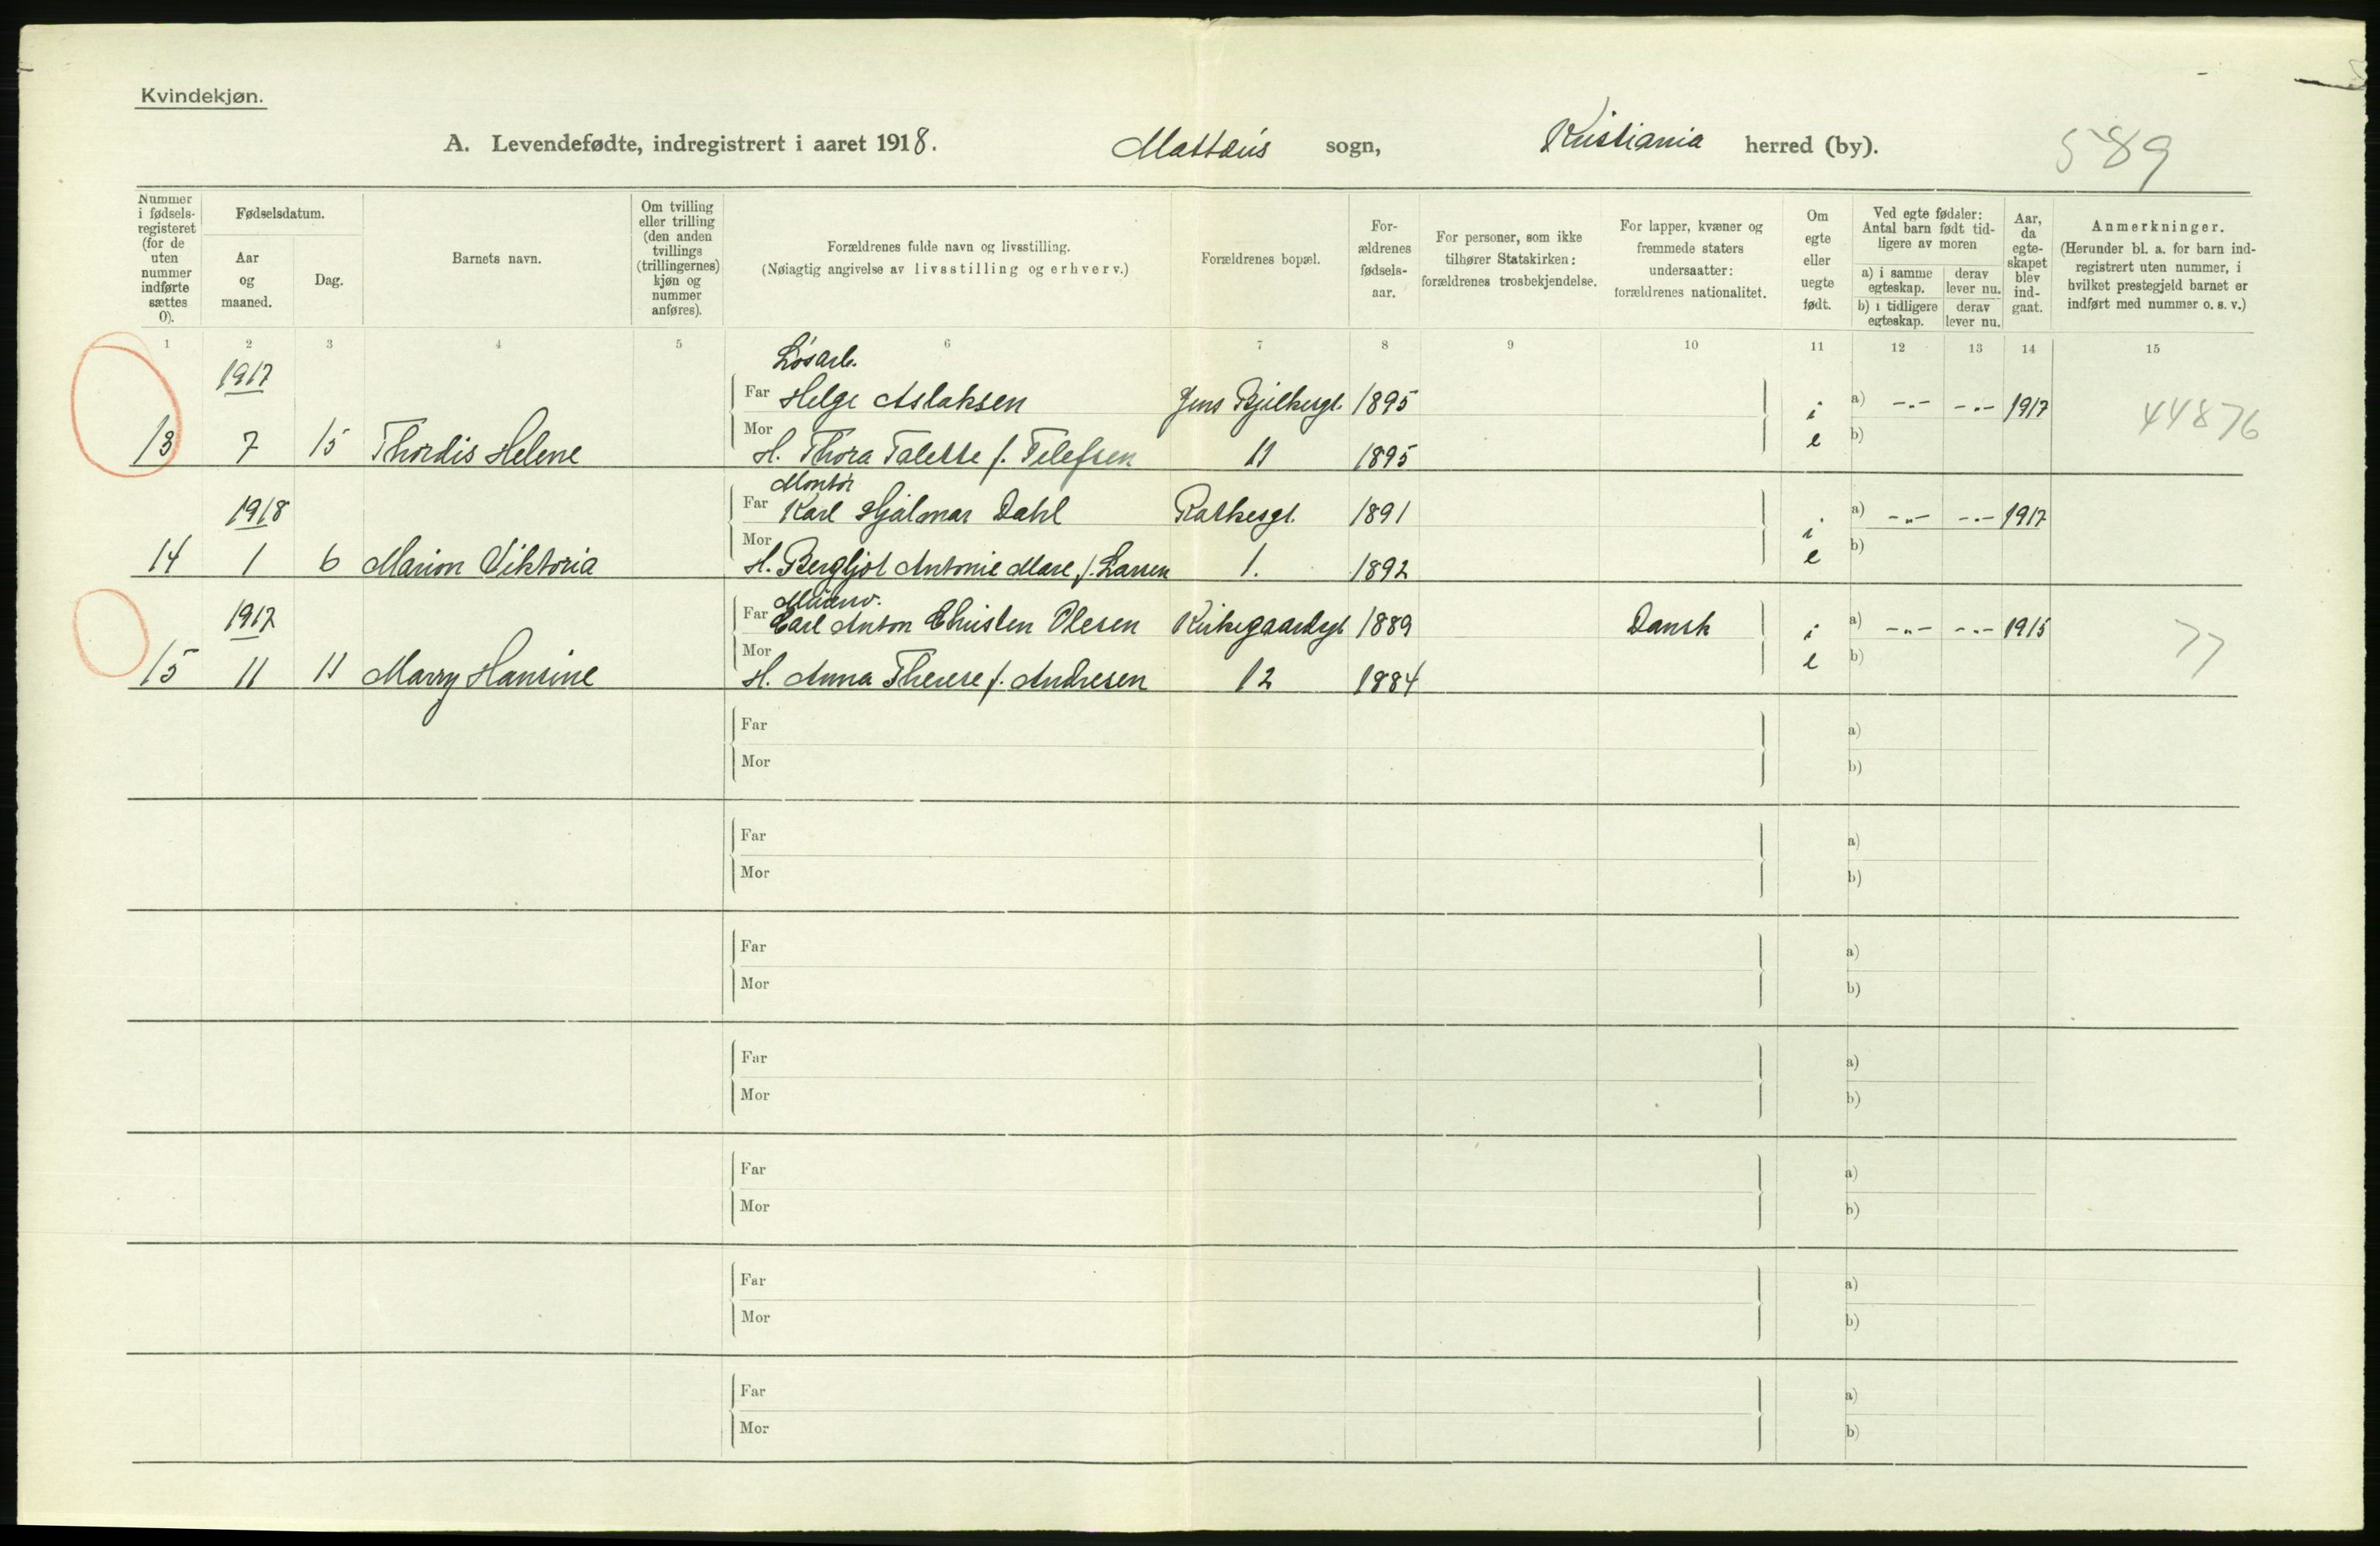 Kvindekjøn.
A. Levendefødte, indregistrert i aaret 1918. Mattæus sogn, Kristiania herred (by). 589
Nummer i fødsels-registeret (for de uten nummer indførte sættes 0).
Fødselsdatum.
Aar og maaned.
Dag.
Barnets navn.
Om tvilling eller trilling (den anden tvillings (trillingernes) kjøn og nummer anføres).
Forældrenes fulde navn og livsstilling.
(Nøiagtig angivelse av livsstilling og erhverv.)
Forældrenes bopæl.
For-ældrenes fødsels-aar.
For personer, som ikke tilhører Statskirken: forældrenes trosbekjendelse.
For lapper, kvæner og fremmede staters undersaatter: forældrenes nationalitet.
Om egte eller uegte født.
Ved egte fødsler: Antal barn født tid-ligere av moren
a) i samme egteskap.
derav lever nu.
b) i tidligere egteskap.
derav lever nu.
Aar, da egte-skapet blev ind-gaat.
Anmerkninger.
(Herunder bl. a. for barn ind-registrert uten nummer, i hvilket prestegjeld barnet er indført med nummer o. s. v.)
1 2 3 4 5 6 7 8 9 10 11 12 13 14 15
1917 Løsarb.
Far Helge Aslaksen Jens Bjelkesgt. 1895 i a) -"- -"- 1917 44876
13 7 15 Thordis Helene Mor H. Thora Talette f. Telefsen 11 1895 e b)
1918 Montør
Far Karl Hjalmar Dahl Rathkesgt. 1891 i a) -"- -"- 1917
14 1 6 Marion Viktoria Mor H. Bergljot Antonie Mare f. Larsen 1. 1892 e b)
1917
Far Carl Anton Christen Olesen Kirkegaardsgt 1889 Dansk i a) -"- -"- 1915 77
15 11 11 Marry Hansine Mor H. Anna Therese f. Andresen 12 1884 e b)
Far a)
Mor b)
Far a)
Mor b)
Far a)
Mor b)
Far a)
Mor b)
Far a)
Mor b)
Far a)
Mor b)
Far a)
Mor b)